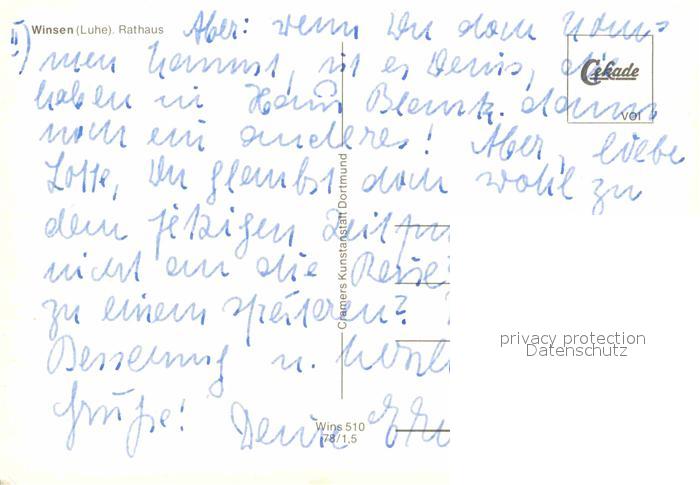 II) Winsen (Luhe). Rathaus
Aber: wenn Du dann kom-
men kannst, ist es Denis, die
Cekade
haben in Haus Blank. dann
VOI
noch ein anderes! Aber, liebe
Lotte, Du glaubst doch wohl zu
dem jetzigen Zeitpu
nicht an die Reise
zu einem späteren?
Besserung u. herzl
Grüße! Deine
Cramers Kunstanstalt Dortmund
Wins 510
78/1,5
privacy protection
Datenschutz